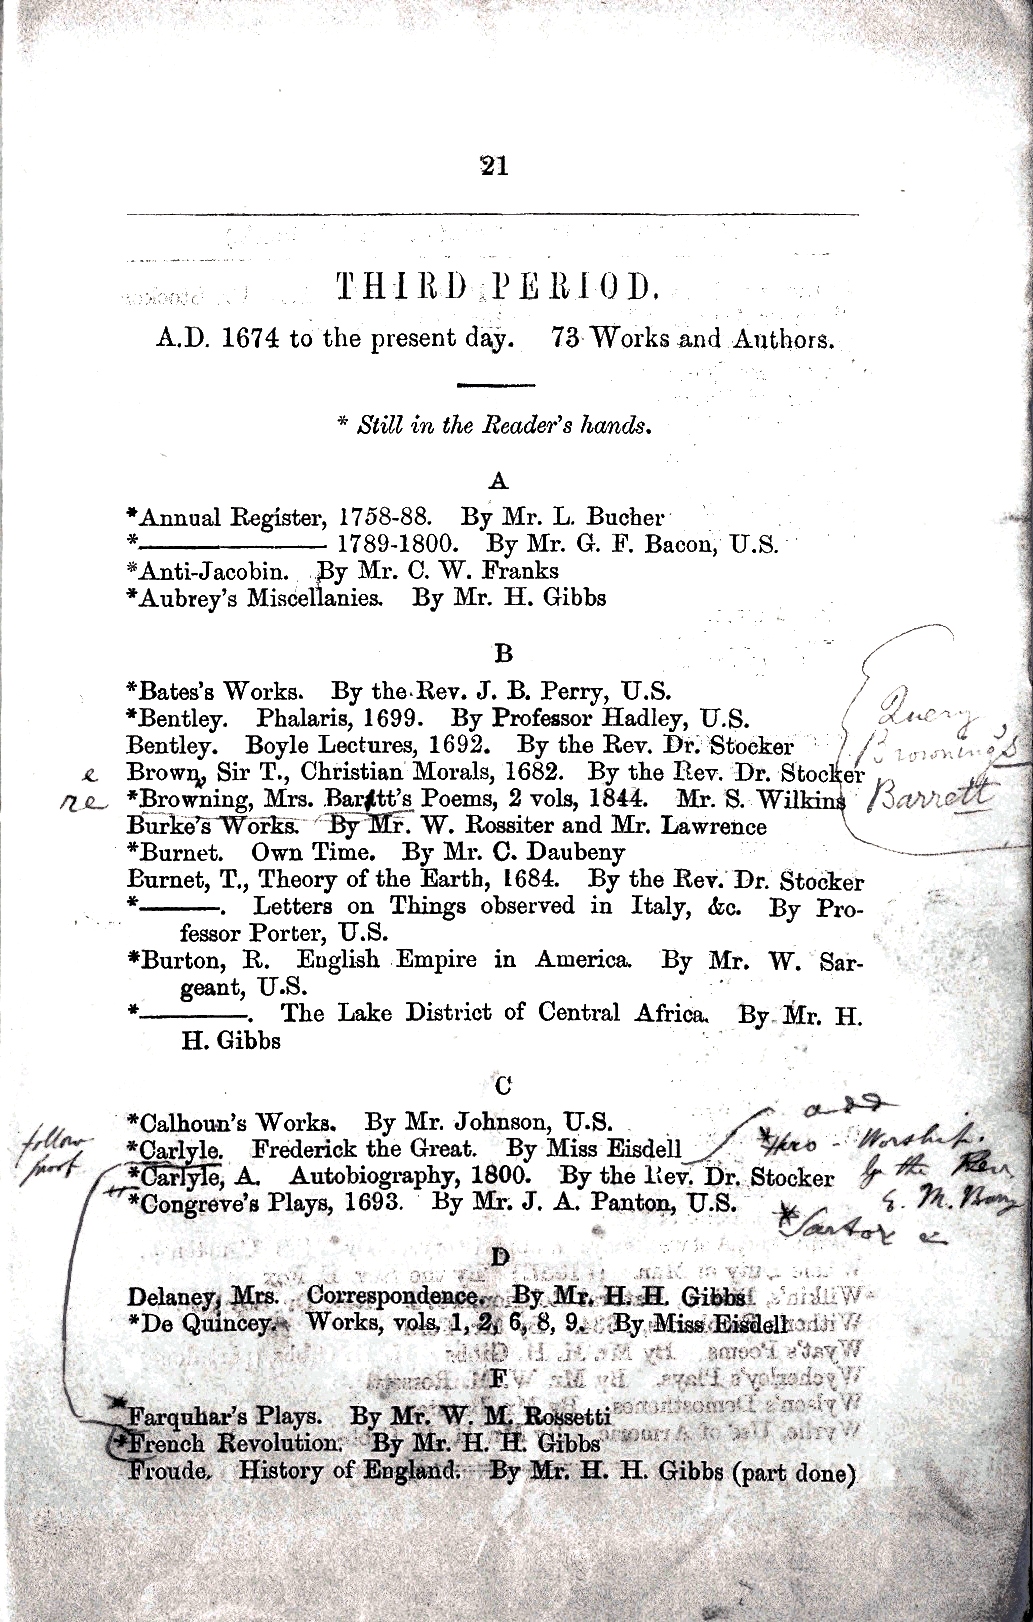 21
THIRD PERIOD.
A.D. 1674 to the present day. 73 Works and Authors.
* Still in the Reader's hands.
A
*Annual Register, 1758-88. By Mr. L. Bucher
*——— 1789-1800. By Mr. G. F. Bacon, U.S.
*Anti-Jacobin. By Mr. C. W. Franks
*Aubrey's Miscellanies. By Mr. H. Gibbs
B
*Bates's Works. By the Rev. J. B. Perry, U.S.
*Bentley. Phalaris, 1699. By Professor Hadley, U.S.
Bentley. Boyle Lectures, 1692. By the Rev. Dr. Stocker
e Brown, Sir T., Christian Morals, 1682. By the Rev. Dr. Stocker
re *Browning, Mrs. Bartt's Poems, 2 vols, 1844. Mr. S. Wilkins
Query
Browning's
Barrett
Burke's Works. By Mr. W. Rossiter and Mr. Lawrence
*Burnet. Own Time. By Mr. C. Daubeny
Burnet, T., Theory of the Earth, 1684. By the Rev. Dr. Stocker
*———. Letters on Things observed in Italy, &c. By Pro-
fessor Porter, U.S.
*Burton, R. English Empire in America. By Mr. W. Sar-
geant, U.S.
*———. The Lake District of Central Africa. By Mr. H.
H. Gibbs
C
*Calhoun's Works. By Mr. Johnson, U.S.
*Carlyle. Frederick the Great. By Miss Eisdell
add
*Hero-Worship.
by the Rev
E. M. Barry
*Sartor
follow
proof
*Carlyle, A. Autobiography, 1800. By the Rev. Dr. Stocker
*Congreve's Plays, 1693. By Mr. J. A. Panton, U.S.
D
Delaney, Mrs. Correspondence. By Mr. H. H. Gibbs
*De Quincey. Works, vols. 1, 2, 6, 8, 9. By Miss Eisdell
F
*Farquhar's Plays. By Mr. W. M. Rossetti
*French Revolution. By Mr. H. H. Gibbs
Froude. History of England. By Mr. H. H. Gibbs (part done)